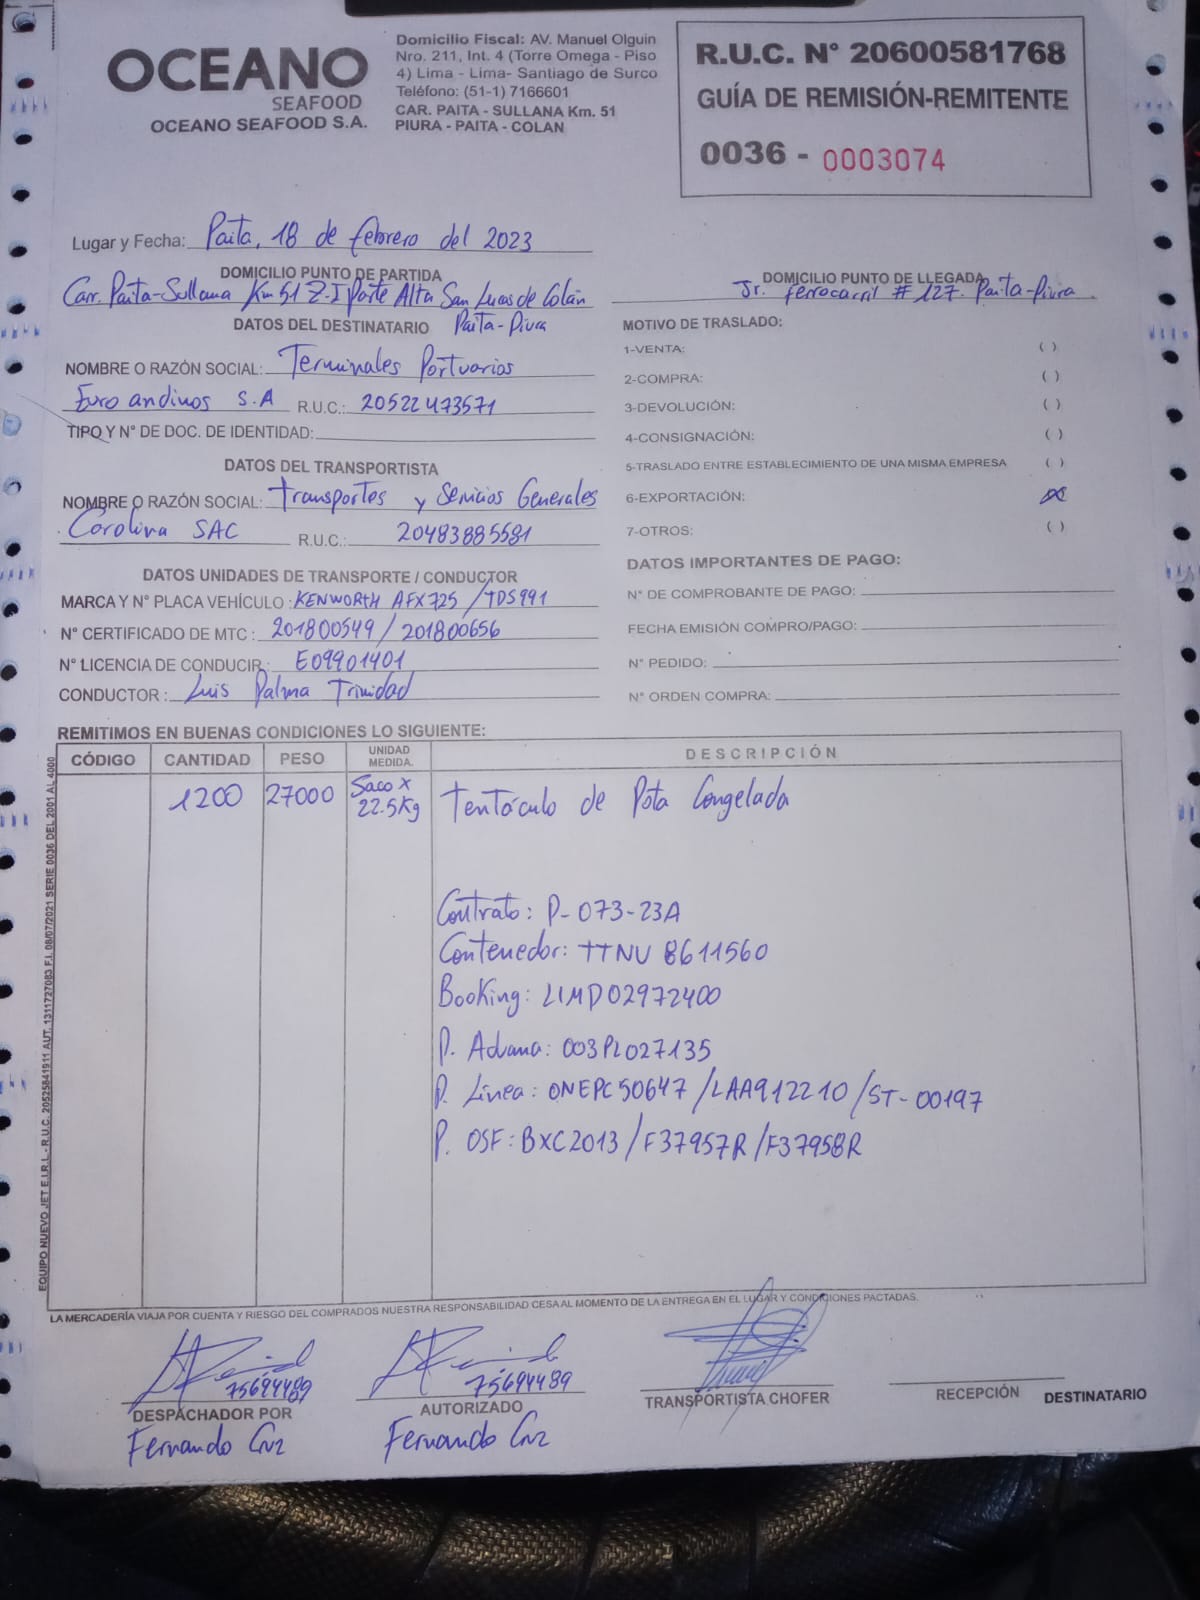 OCEANO
SEAFOOD
OCEANO SEAFOOD S.A.
Domicilio Fiscal: AV. Manuel Olguin
Nro. 211, Int. 4 (Torre Omega - Piso
4) Lima - Lima- Santiago de Surco
Teléfono: (51-1) 7166601
CAR. PAITA - SULLANA Km. 51
PIURA - PAITA - COLAN
R.U.C. N° 20600581768
GUÍA DE REMISIÓN-REMITENTE
0036 - 0003074
Lugar y Fecha: Paita, 18 de febrero del 2023
DOMICILIO PUNTO DE PARTIDA
Carr. Paita-Sullana Km 51 Z.I Parte Alta San Lucas de Colán
Paita-Piura
DOMICILIO PUNTO DE LLEGADA
Jr. ferrocarril # 127. Paita-Piura
DATOS DEL DESTINATARIO
NOMBRE O RAZÓN SOCIAL: Terminales Portuarios
Euro andinos S.A R.U.C.: 20522473571
TIPO Y N° DE DOC. DE IDENTIDAD:
DATOS DEL TRANSPORTISTA
NOMBRE O RAZÓN SOCIAL: Transportes y Servicios Generales
Carolina SAC R.U.C.: 20483885581
DATOS UNIDADES DE TRANSPORTE / CONDUCTOR
MARCA Y N° PLACA VEHÍCULO : KENWORTH AFX725 / TDS991
N° CERTIFICADO DE MTC : 201800549 / 201800656
N° LICENCIA DE CONDUCIR : E09901401
CONDUCTOR : Luis Palma Trinidad
MOTIVO DE TRASLADO:
1-VENTA: ( )
2-COMPRA: ( )
3-DEVOLUCIÓN: ( )
4-CONSIGNACIÓN: ( )
5-TRASLADO ENTRE ESTABLECIMIENTO DE UNA MISMA EMPRESA ( )
6-EXPORTACIÓN: (X)
7-OTROS: ( )
DATOS IMPORTANTES DE PAGO:
N° DE COMPROBANTE DE PAGO:
FECHA EMISIÓN COMPRO/PAGO:
N° PEDIDO:
N° ORDEN COMPRA:
REMITIMOS EN BUENAS CONDICIONES LO SIGUIENTE:
CÓDIGO CANTIDAD PESO UNIDAD MEDIDA. DESCRIPCIÓN
1200 27000 Saco x 22.5Kg Tentáculo de Pota Congelada
Contrato: P-073-23A
Contenedor: TTNU 8611560
Booking: LIMD02972400
P. Aduana: 003PL027135
P. Línea: ONEPC50647 /LAA912210 /ST-00197
P. OSF: BXC2013 / F37957R /F37958R
EQUIPO NUEVO JET E.I.R.L - R.U.C. 20525841911 AUT. 1311727083 F.I. 08/07/2021 SERIE 0036 DEL 2001 AL 4000
LA MERCADERÍA VIAJA POR CUENTA Y RIESGO DEL COMPRADOS NUESTRA RESPONSABILIDAD CESA AL MOMENTO DE LA ENTREGA EN EL LUGAR Y CONDICIONES PACTADAS.
75694489
DESPACHADOR POR
Fernando Cruz
75694489
AUTORIZADO
Fernando Cruz
TRANSPORTISTA CHOFER
RECEPCIÓN DESTINATARIO